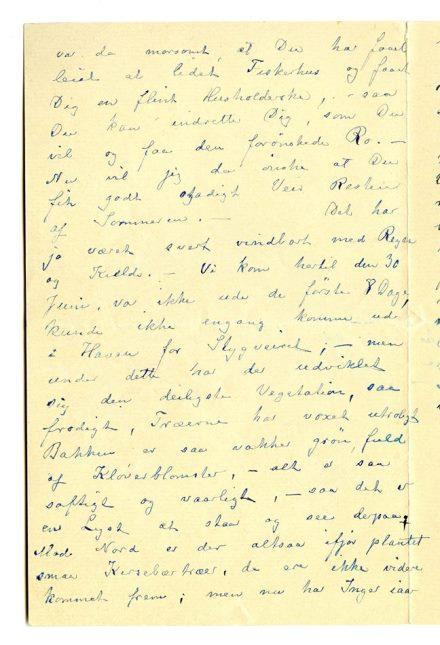 va da morsomt, at Du har faaet
leiet et lidet Fiskerhus og faaet
Dig en flink Husholderske, - saa
Du kan indrette Dig, som Du
vil og faa den forønskede Ro. -
Nu vil jeg da ønske at Du
fik godt stadigt Veir Resten
af Sommeren. - Det har
jo været svert vindhart med Regn
og Kulde. - Vi kom hertil den 30
Juni, var ikke ude de første 8 Dage,
kunde ikke engang komme ud
i Haven for Stygveiret; - men
under dette har der udviklet
sig den deiligste Vegetation, saa
frodigt, Træerne har voxet utroligt
Bakken er saa vakker grøn, fuld
af Kløverblomster, - alt er saa
saftigt og vaarligt, - saa det er
en Lyst at staa og see derpaa,
Mod Nord er der altsaa ifjor plantet
smaa Kirsebærtræer, de ere ikke videre
kommet frem; men nu har Inger iaar